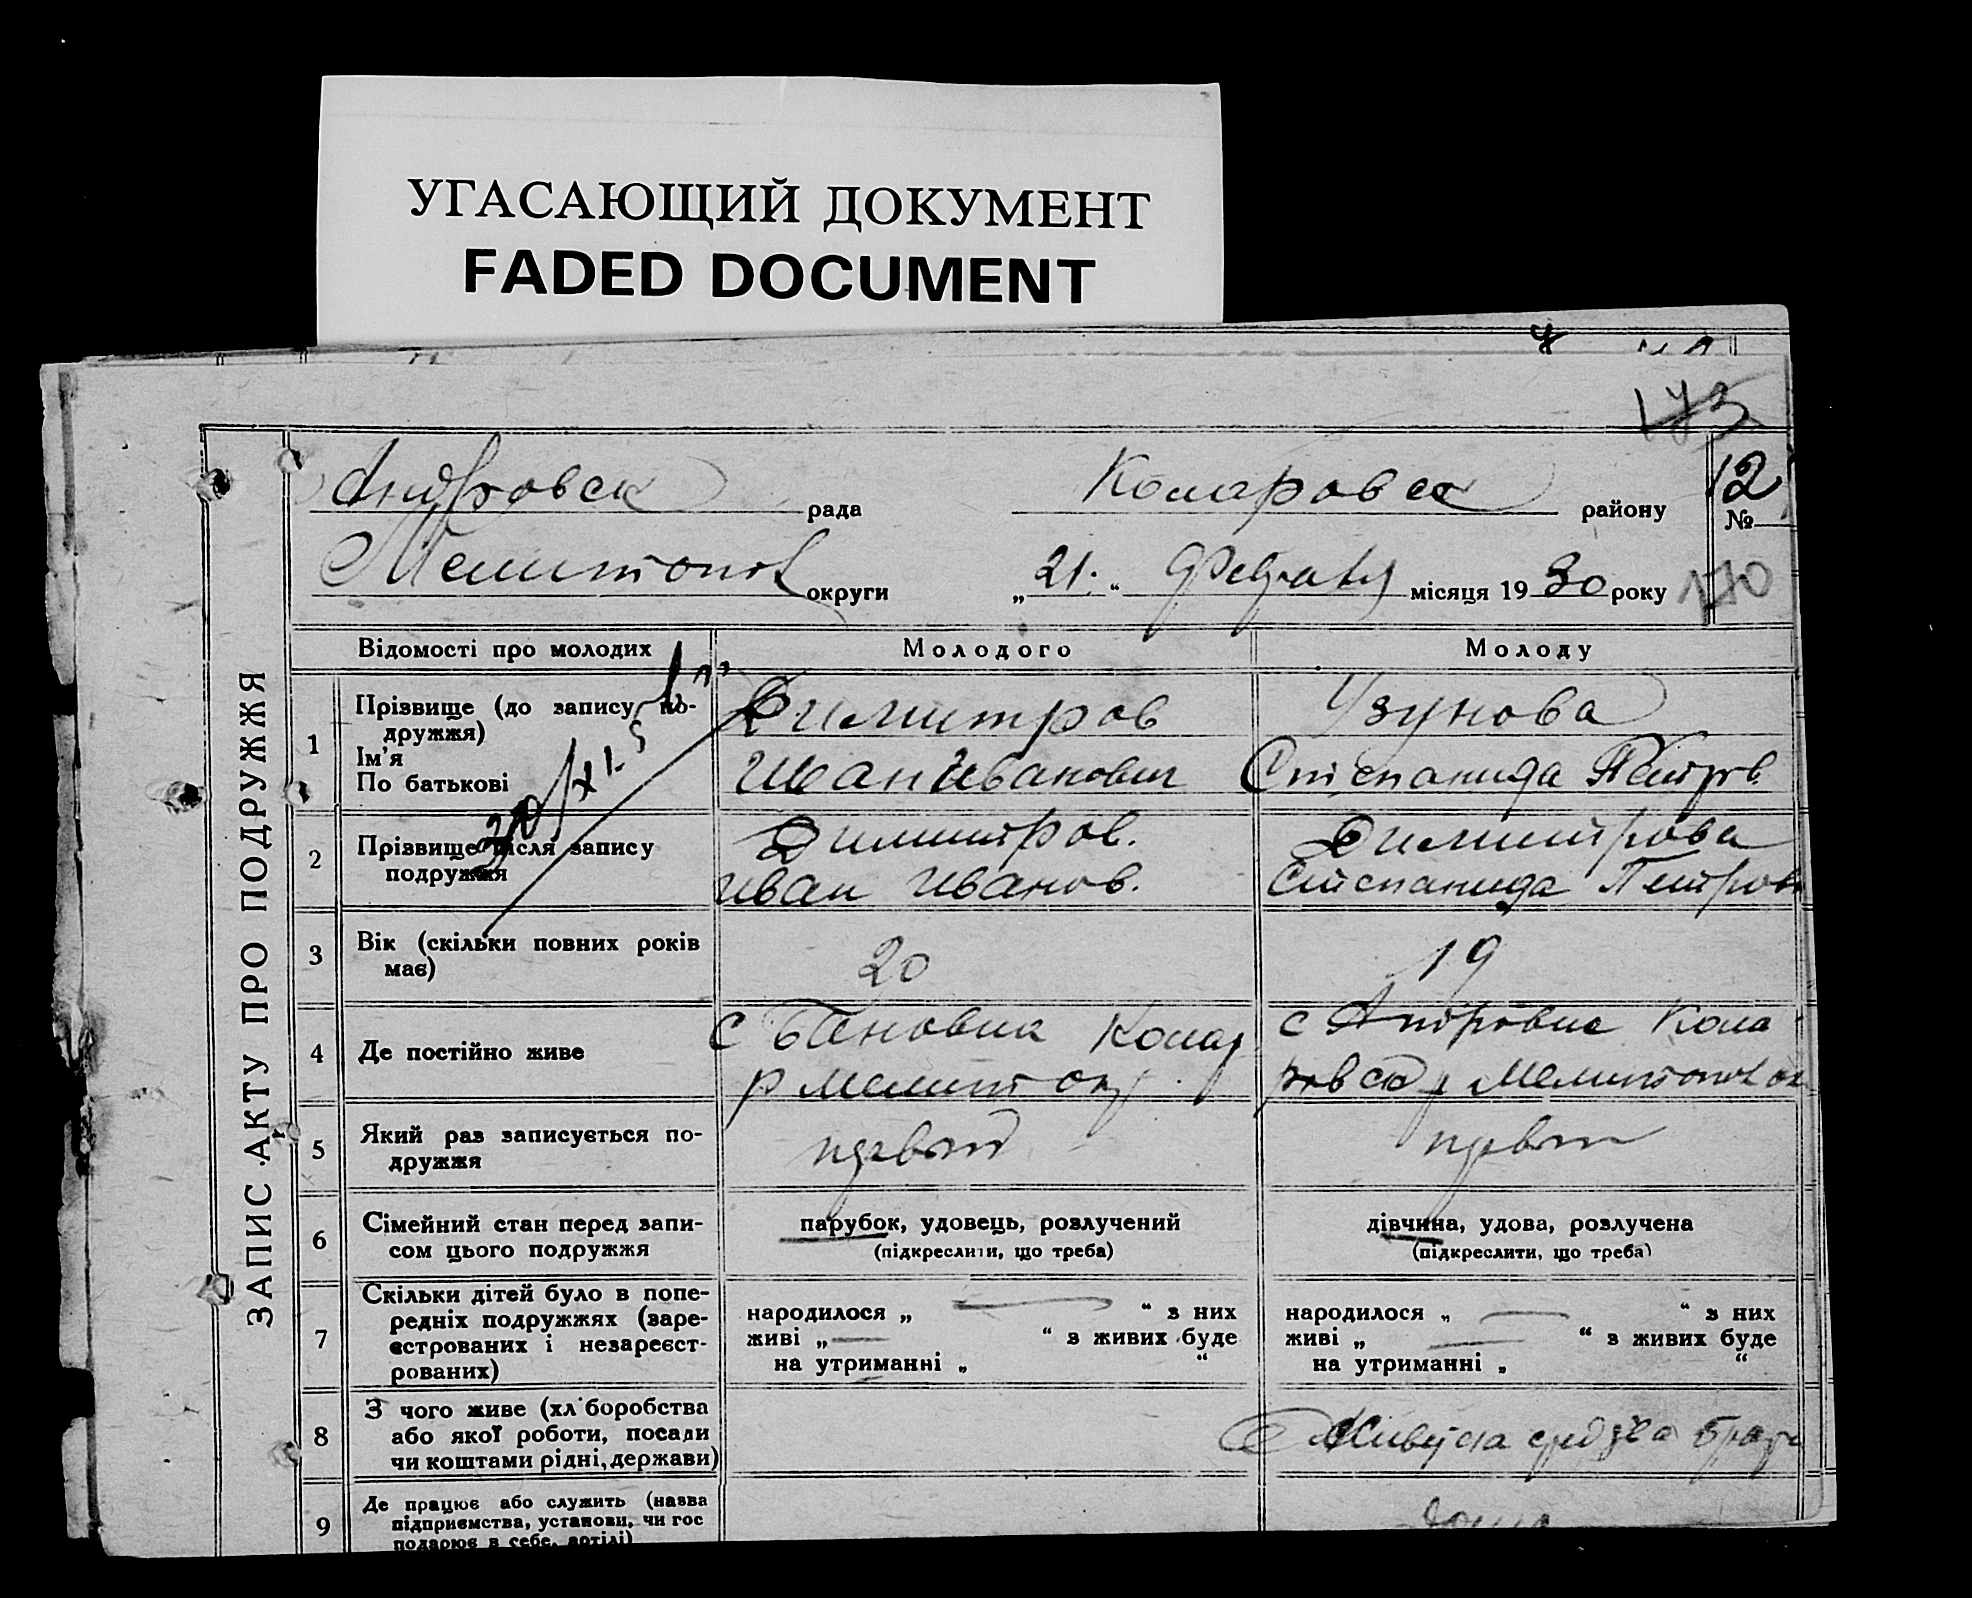 УГАСАЮЩИЙ ДОКУМЕНТ
FADED DOCUMENT
173
Андровск рада Комаровск району 12 №
Мелитопол округи „21.“ Февраля місяця 1930 року 170
ЗАПИС АКТУ ПРО ПОДРУЖЖЯ
Відомості про молодих Молодого Молоду
1 Прізвище (до запису по-
дружжя)
Ім'я
По батькові
Димитров Узунова
Иван Иванович Степанида Петров.
2 Прізвище після запису
подружжя
Димитров. Димитрова
Иван Иванов. Степанида Петров
3 Вік (скільки повних років
має)
20 19
4 Де постійно живе
с Бановка Комар с Андровка Кома
р Мелитоп ровск р Мелитопол ок
5 Який раз записується по-
дружжя
первый первый
6 Сімейний стан перед запи-
сом цього подружжя
парубок, удовець, розлучений дівчина, удова, розлучена
(підкреслити, що треба) (підкреслити, що треба)
7 Скільки дітей було в попе-
редніх подружжях (заре-
єстрованих і незареєст-
рованих)
народилося „ “ з них народилося „ “ з них
живі „ “ з живих буде живі „ “ з живих буде
на утриманні „ “ на утриманні „ “
8 З чого живе (хліборобства
або якої роботи, посади
чи коштами рідні, держави)
9 Де працює або служить (назва
підприємства, установи, чи гос
подарює в себе, артілі)